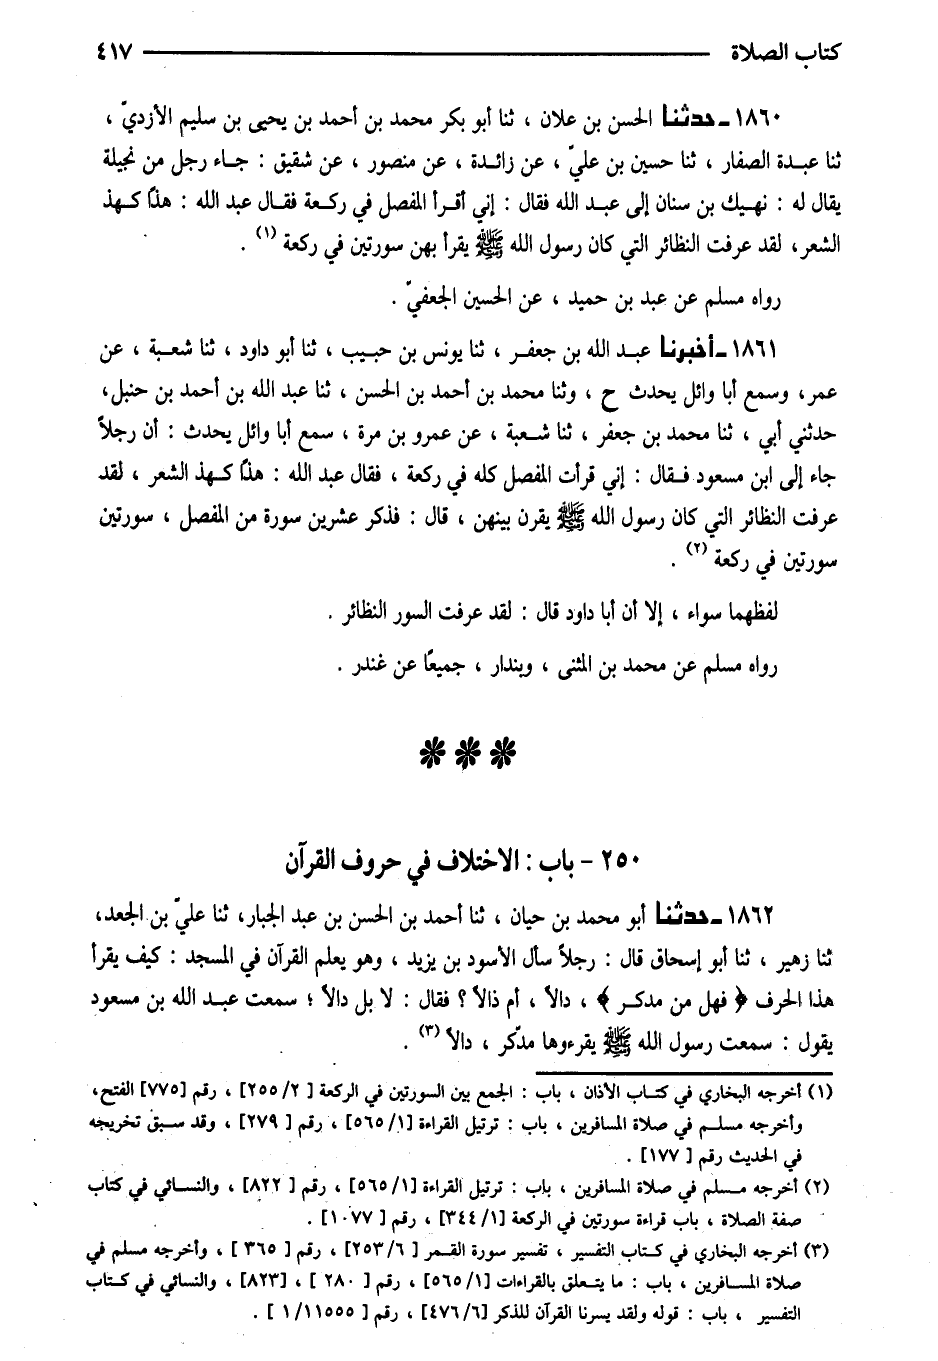 كتاب الصلاة ٤١٧
١٨٦٠ ـ حدثنا الحسن بن علان ، ثنا أبو بكر محمد بن أحمد بن يحيى بن سليم الأزديّ ،
ثنا عبدة الصفار ، ثنا حسين بن عليّ ، عن زائدة ، عن منصور ، عن شقيق : جاء رجل من نجيلة
يقال له : نهيك بن سنان إلى عبد الله فقال : إني أقرأ المفصل في ركعة فقال عبد الله : هذًا كهذ
الشعر، لقد عرفت النظائر التي كان رسول الله ﷺ يقرأ بهن سورتين في ركعة (١) .
رواه مسلم عن عبد بن حميد ، عن الحسين الجعفيّ .
١٨٦١ ـ أخبرنا عبد الله بن جعفر ، ثنا يونس بن حبيب ، ثنا أبو داود ، ثنا شعبة ، عن
عمر، وسمع أبا وائل يحدث ح ، وثنا محمد بن أحمد بن الحسن ، ثنا عبد الله بن أحمد بن حنبل،
حدثني أبي ، ثنا محمد بن جعفر ، ثنا شعبة ، عن عمرو بن مرة ، سمع أبا وائل يحدث : أن رجلاً
جاء إلى ابن مسعود فقال : إني قرأت المفصل كله في ركعة ، فقال عبد الله : هذًا كهذ الشعر ، لقد
عرفت النظائر التي كان رسول الله ﷺ يقرن بينهن ، قال : فذكر عشرين سورة من المفصل ، سورتين
سورتين في ركعة (٢) .
لفظهما سواء ، إلا أن أبا داود قال : لقد عرفت السور النظائر .
رواه مسلم عن محمد بن المثنى ، وبندار ، جميعًا عن غندر .
٢٥٠ - باب : الاختلاف في حروف القرآن
١٨٦٢ ـ حدثنا أبو محمد بن حيان ، ثنا أحمد بن الحسن بن عبد الجبار، ثنا عليّ بن الجعد،
ثنا زهير ، ثنا أبو إسحاق قال : رجلاً سأل الأسود بن يزيد ، وهو يعلم القرآن في المسجد : كيف يقرأ
هذا الحرف ﴿ فهل من مدكر ﴾ ، دالاً ، أم ذالاً ؟ فقال : لا بل دالاً ؛ سمعت عبد الله بن مسعود
يقول : سمعت رسول الله ﷺ يقرءوها مدّكر ، دالاً (٣) .
(١) أخرجه البخاري في كتاب الأذان ، باب : الجمع بين السورتين في الركعة [ ٢/ ٢٥٥] ، رقم [٧٧٥] الفتح،
وأخرجه مسلم في صلاة المسافرين ، باب : ترتيل القراءة [١/ ٥٦٥] ، رقم [ ٢٧٩] ، وقد سبق تخريجه
في الحديث رقم [ ١٧٧] .
(٢) أخرجه مسلم في صلاة المسافرين ، باب : ترتيل القراءة [١/ ٥٦٥] ، رقم [ ٨٢٢] ، والنسائي في كتاب
صفة الصلاة ، باب قراءة سورتين في الركعة [١/ ٣٤٤] ، رقم [ ١٠٧٧] .
(٣) أخرجه البخاري في كتاب التفسير ، تفسير سورة القمر [ ٦/ ٢٥٣] ، رقم [ ٣٦٥ ] ، وأخرجه مسلم في
صلاة المسافرين ، باب : ما يتعلق بالقراءات [١/ ٥٦٥] ، رقم [ ٢٨٠ ] ، [٨٢٣] ، والنسائي في كتاب
التفسير ، باب : قوله ولقد يسرنا القرآن للذكر [٦/ ٤٧٦] ، رقم [ ١١٥٥٥/ ١ ] .